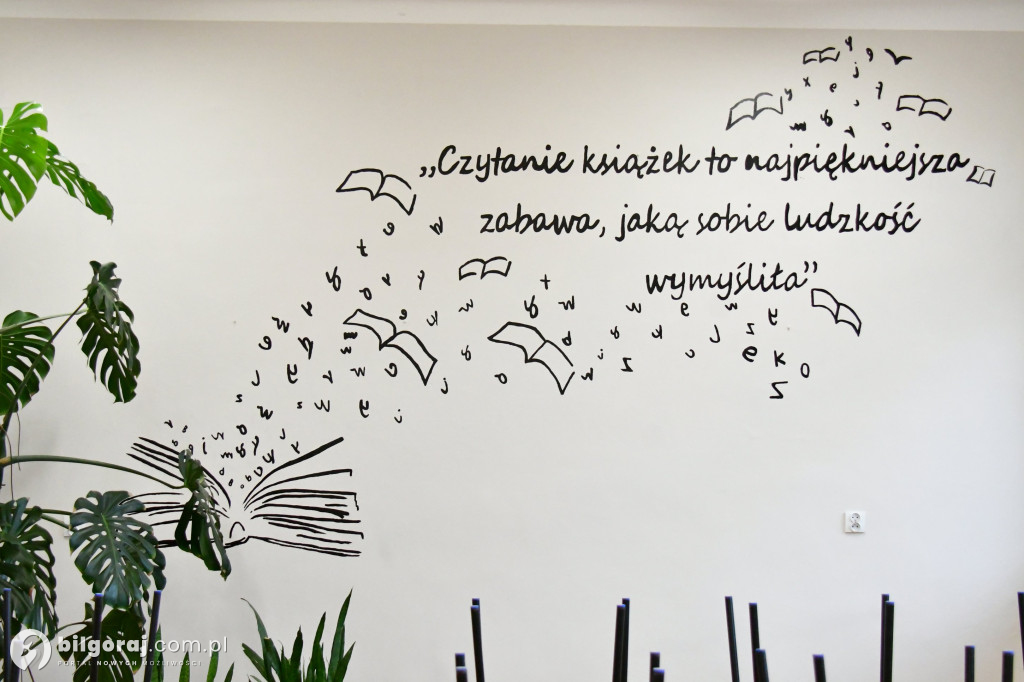 „Czytanie książek to najpiękniejsza
zabawa, jaką sobie ludzkość
wymyśliła”
bilgoraj.com.pl
PORTAL NOWYCH MOŻLIWOŚCI